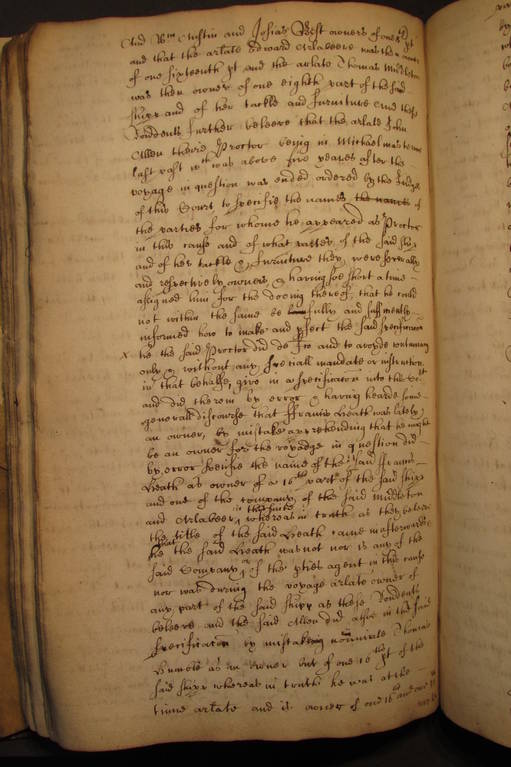 And Wm Austin and Josias Best owners of one 8th pt
and that the arlate Edward Arlabeere was then owner
of one sixteenth pt and the arlate Thomas Middleton
was then owner of one eighth part of the said
shipp and of her tackle and furniture And these
Rondents further beleeve that the arlate John
Allen theire Proctor being in Michaelmas terme
last past wch was above five yeares after the
voyage in question was ended ordered by the Judge
of this Court to specifie the names the names of
the parties for whome he appeared as Proctor
in this cause and of what parts of the said shipp
and of her tackle & furniture they were severally
and respectively owners & having soe short a time
assigned him for the doeing thereof, that he could
not within the same be fully and sufficiently
informed how to make and pfect the said specification
x he the said Proctor did de fco and to avoyde contumacy
only & without any speciall mandate or instruction
in that behalfe, give in a specificacon into the Regist
and did therein by error & having heard some
generall discourse that ffrancis Heath was lately
an owner, by mistake apprehending that he might
be an owner for the voyadge in question did
by error specifie the name of the said ffrancis
Heath as owner of a 16th part of the said shipp
and one of the company of the said Middleton
and Arlabeere in this suite whereas in truth as they beleeve
the title of the said Heath came in afterwards &
that he the said Heath was not nor is any of the
said Company or of the pties agent in this cause
nor was during the voyage arlate owner of
any part of the said shipp as these Rondents
beleeve and the said Allen did alsoe in the said
specificacon by mistake nominate Thomas
as an owner but of one 16th pt of the
said shipp whereas in truth he was at the
time arlate and is owner of one 16th and one